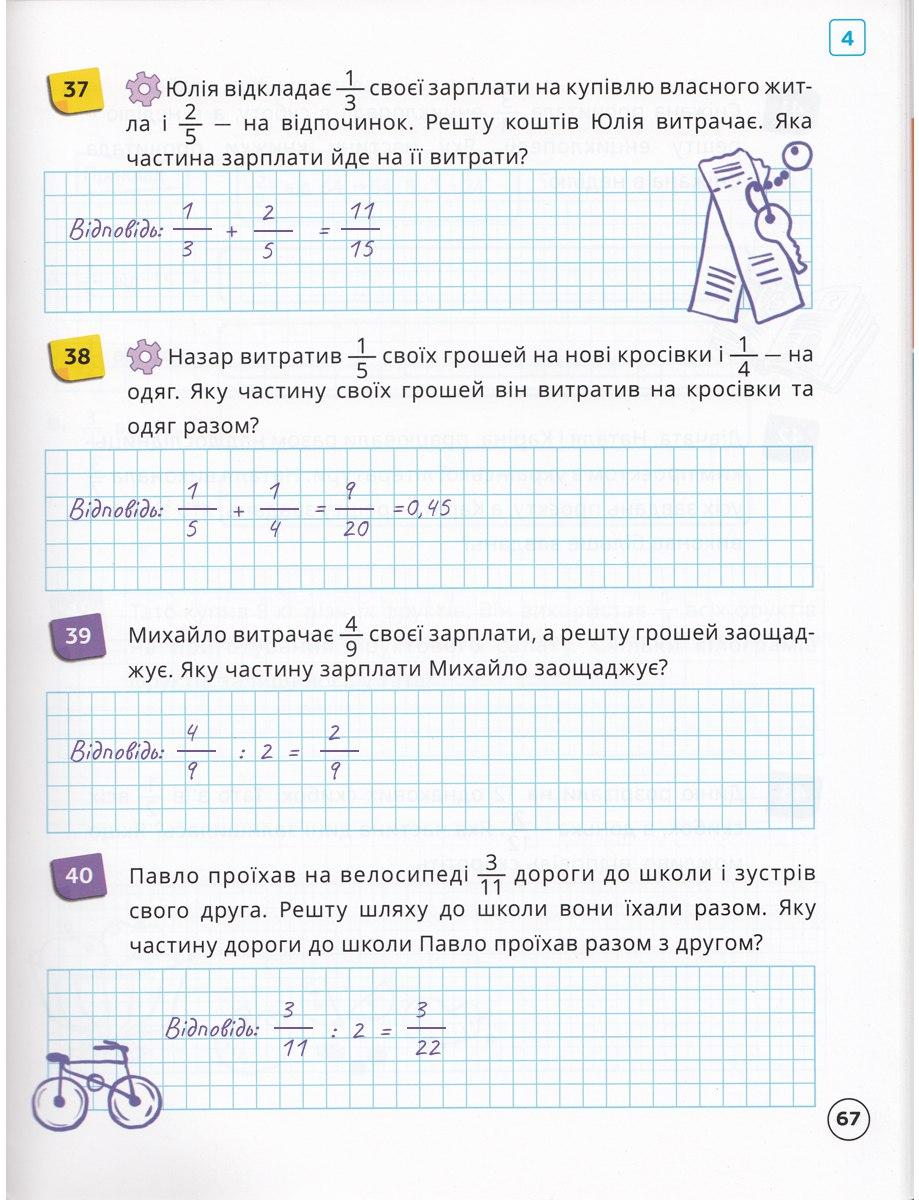 4
37 Юлія відкладає 1/3 своєї зарплати на купівлю власного жит-
ла і 2/5 — на відпочинок. Решту коштів Юлія витрачає. Яка
частина зарплати йде на її витрати?
Відповідь: 1/3 + 2/5 = 11/15
38 Назар витратив 1/5 своїх грошей на нові кросівки і 1/4 — на
одяг. Яку частину своїх грошей він витратив на кросівки та
одяг разом?
Відповідь: 1/5 + 1/4 = 9/20 =0,45
39 Михайло витрачає 4/9 своєї зарплати, а решту грошей заощад-
жує. Яку частину зарплати Михайло заощаджує?
Відповідь: 4/9 : 2 = 2/9
40 Павло проїхав на велосипеді 3/11 дороги до школи і зустрів
свого друга. Решту шляху до школи вони їхали разом. Яку
частину дороги до школи Павло проїхав разом з другом?
Відповідь: 3/11 : 2 = 3/22
67